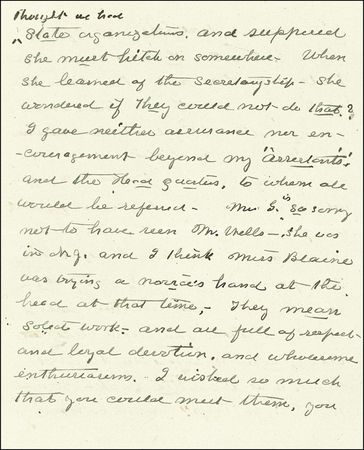 Thought we had
"State organizations, and supposed
she must hitch on somewhere. When
she learned of the Secretaryship - she
wondered if they could not do that.?
I gave neither assurance nor en-
couragement beyond my "assistants"
and the Head quarters, to whom all
would be referred - Mrs G. is so sorry
not to have seen Mr. Wells -, She was
in N.Y. and I think Miss Blaine
was trying a novice's hand at the
head at that time, - They mean
solid work - and are full of respect
and loyal devotion, and wholesome
enthusiasms. I wished so much
that you could meet them, you